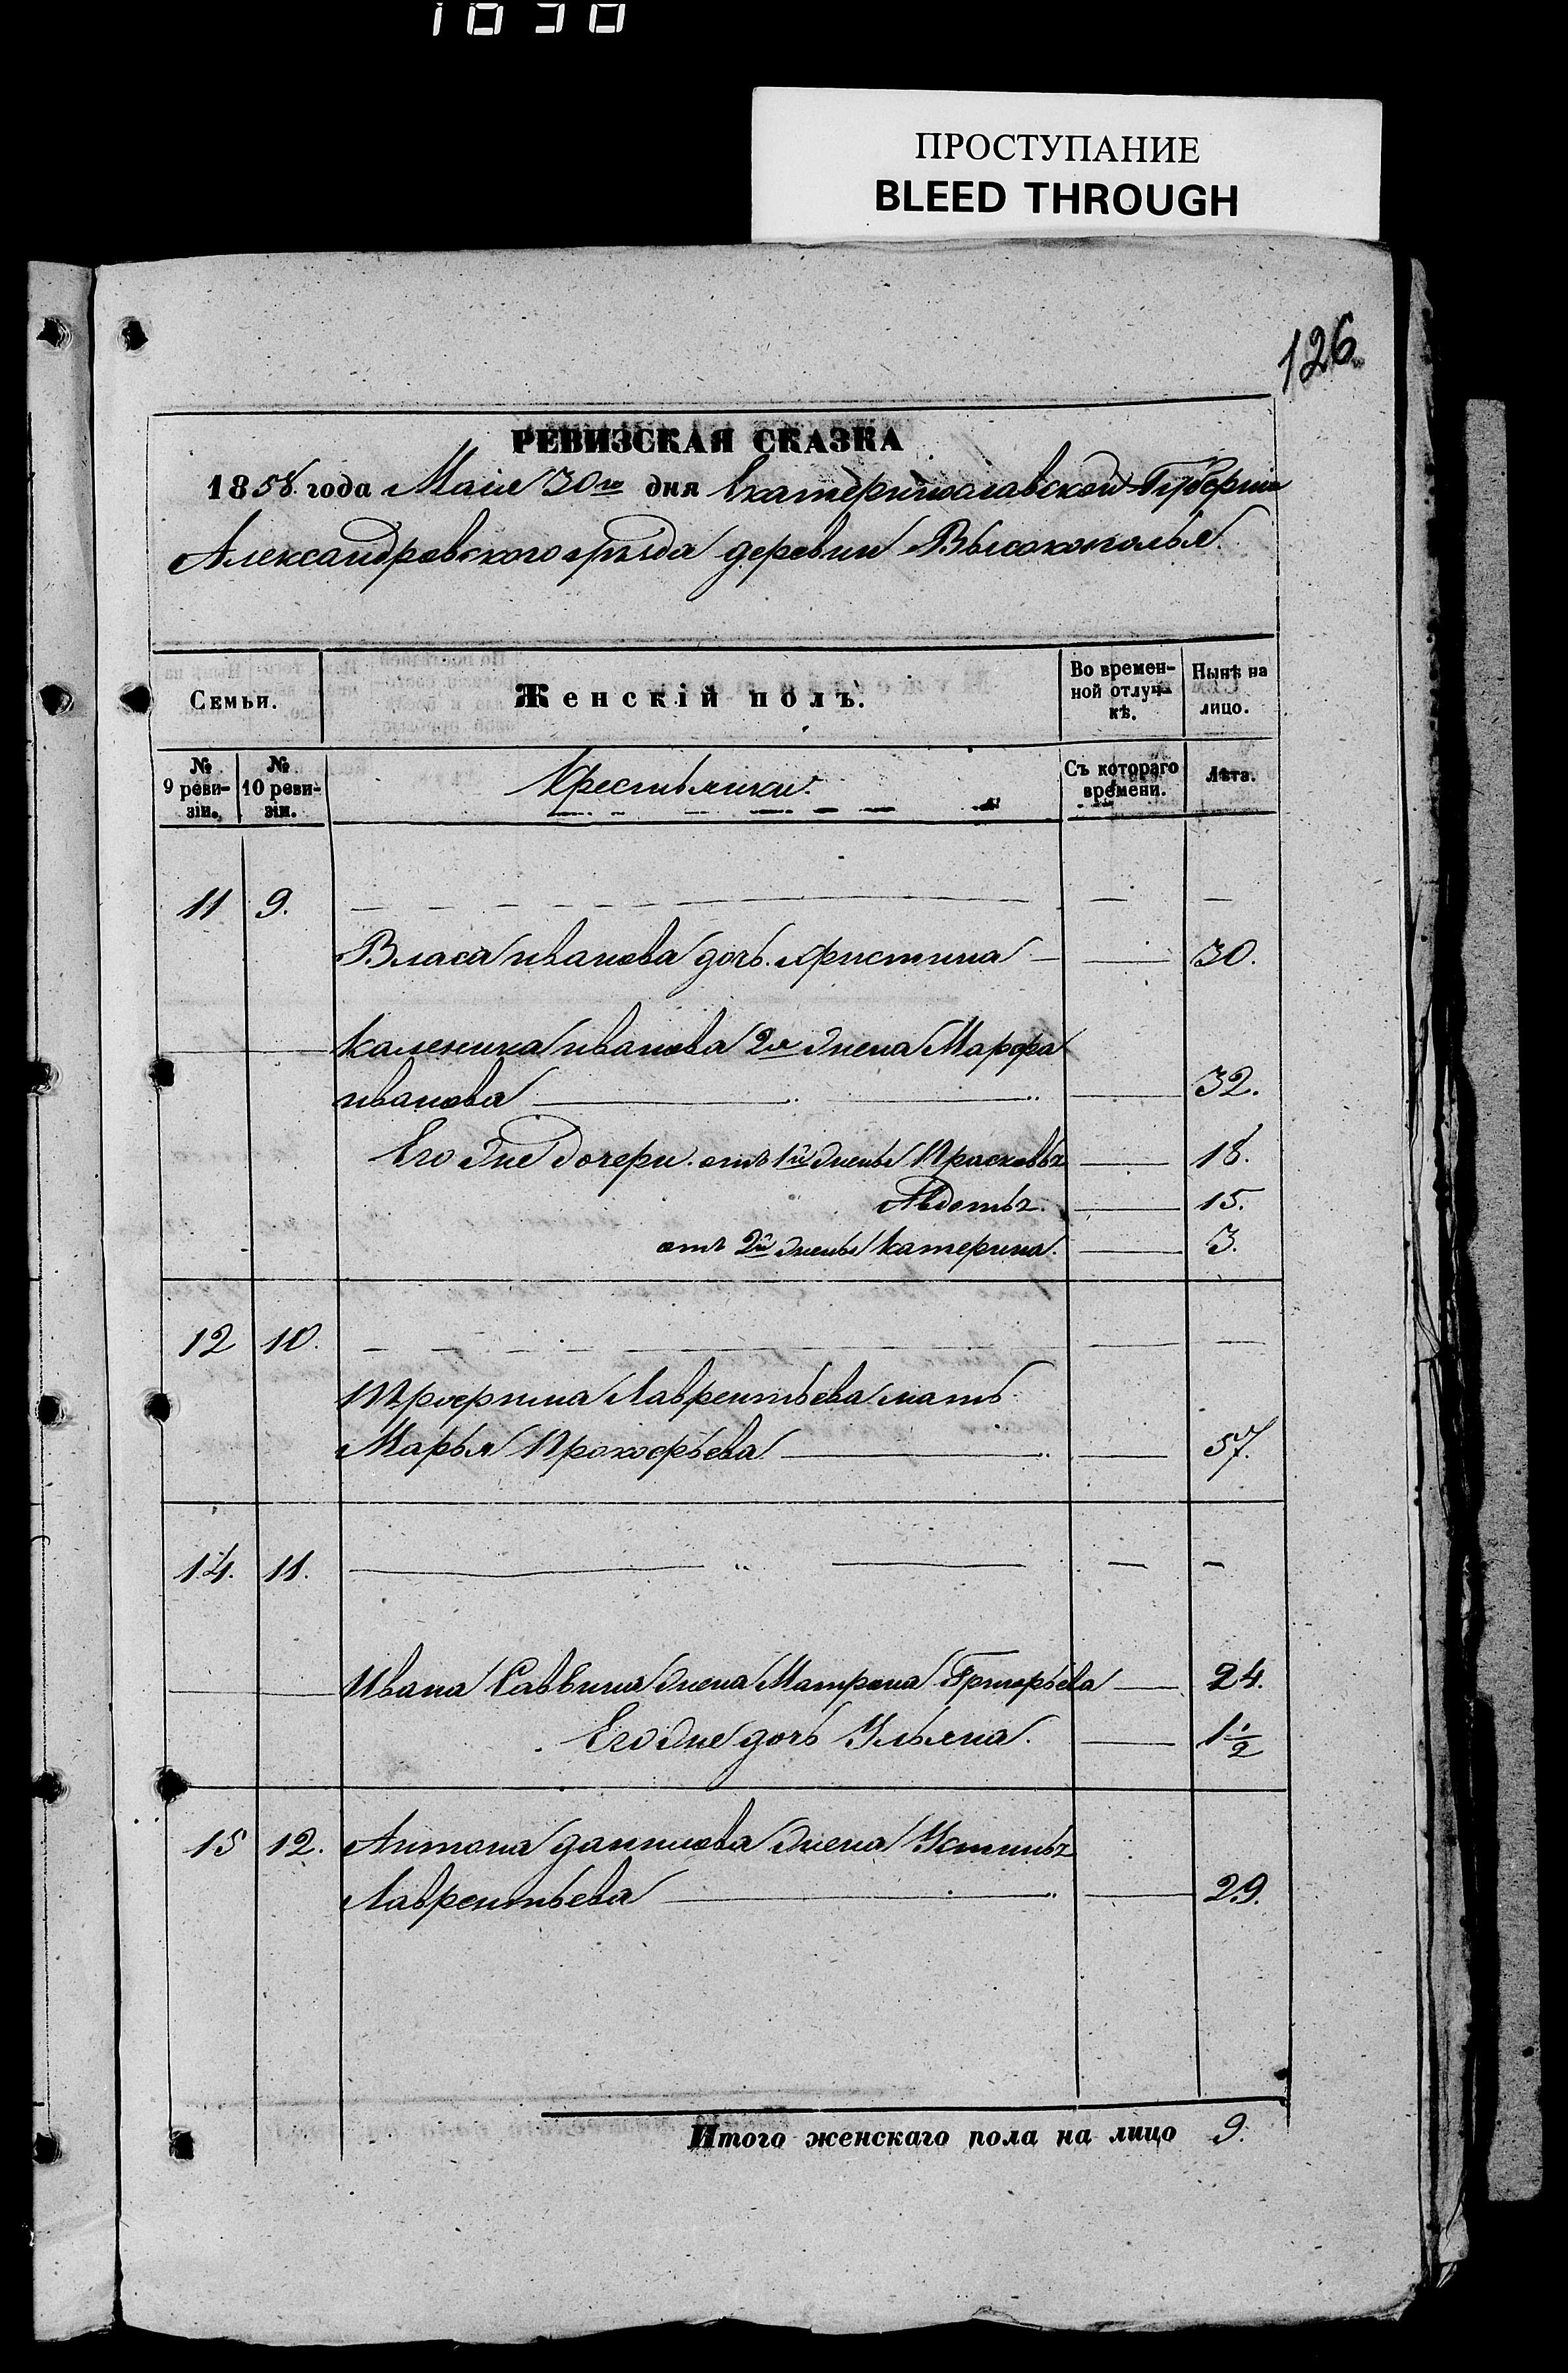 ПРОСТУПАНИЕ
BLEED THROUGH
126
РЕВИЗСКАЯ СКАЗКА
1858 года Маія 30го дня Екатеринославской Губерніи
Александровского уѣзда деревни Высокополья.
Семьи.
Женскій полъ.
Во времен-
ной отлуч-
кѣ.
Нынѣ на
лицо.
№
9 реви-
зіи.
№
10 реви-
зіи.
Крестьянки.
Съ котораго
времени.
Лѣта.
11 9.
Власа иванова дочь христина 30.
Каленика иванова 2я жена Марфа
иванова 32.
Его же дочери отъ 1й жены Прасковья 18.
Авдотья 15.
отъ 2й жены Катерина. 3.
12 10.
Лаврентьева мать
Марья Прокофьева 57.
14. 11.
Ивана Саввина жена Матрена Григорьева 24.
Его же дочь Ульяна. 1 1/2
15 12. Антона данилова жена Устинья
Лаврентьева 29.
Итого женскаго пола на лицо 9.